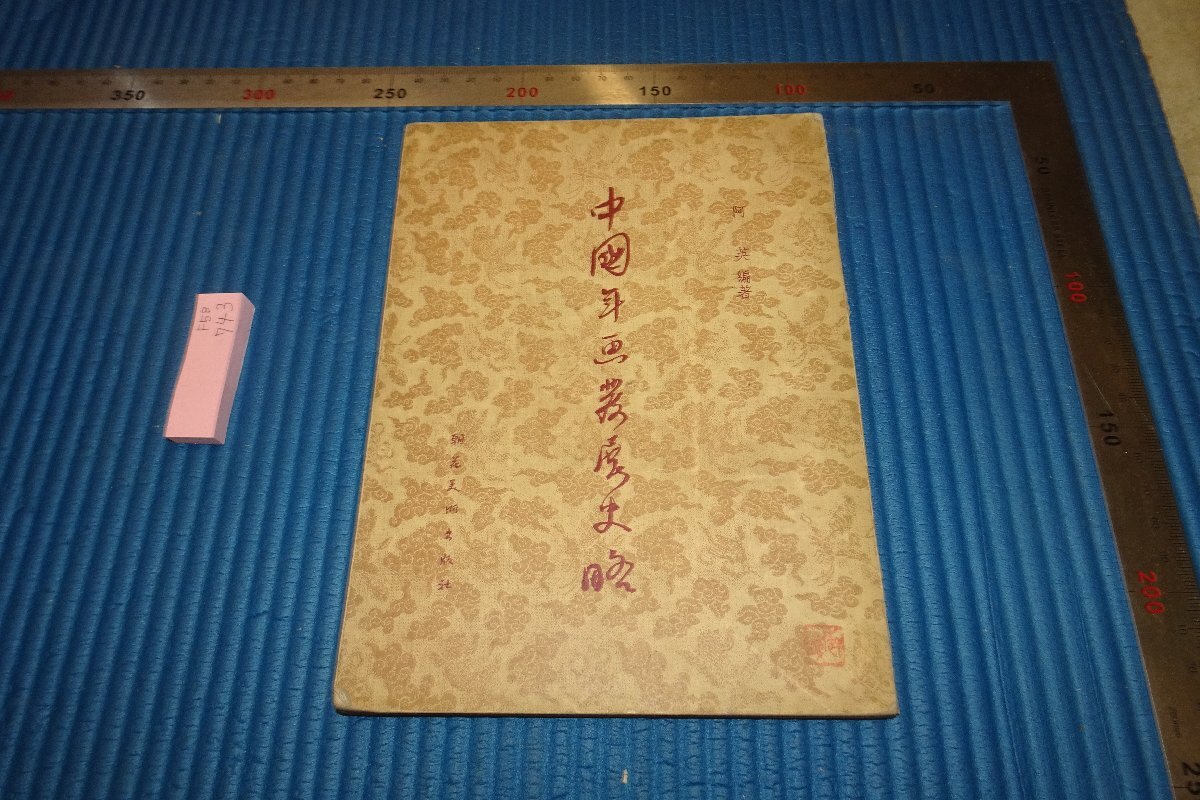 350 300 250 200 150 100 50
50
100
150
200
阿英編著
中國年画发展史略
朝花美術出版社
F5B
743